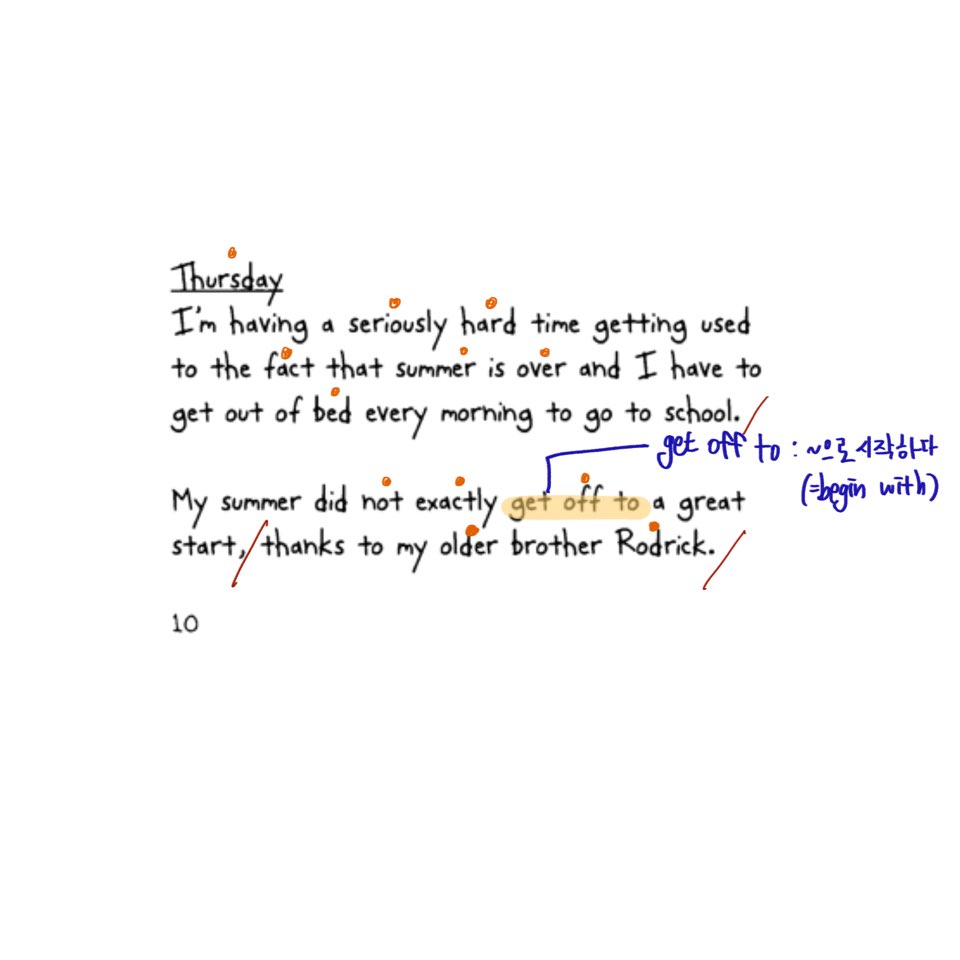 Thursday
I'm having a seriously hard time getting used
to the fact that summer is over and I have to
get out of bed every morning to go to school.
get off to : ~으로 시작하다
(=begin with)
My summer did not exactly get off to a great
start, thanks to my older brother Rodrick.
10